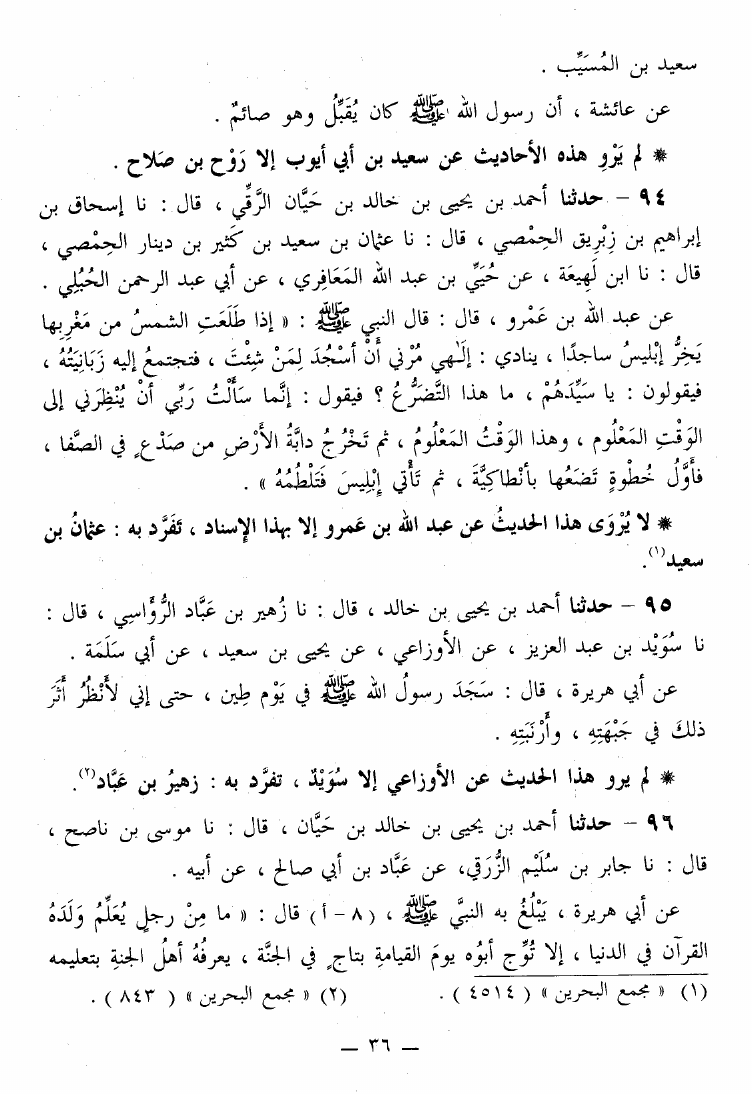 سعيد بن المُسَيِّب .
عن عائشة ، أن رسول الله ﷺ كان يُقَبِّلُ وهو صائمٌ .
* لم يَرْوِ هذه الأحاديث عن سعيد بن أبي أيوب إلا رَوْح بن صَلاح .
٩٤ – حدثنا أحمد بن يحيى بن خالد بن حَيَّان الرَّقِّي ، قال : نا إسحاق بن
إبراهيم بن زِبْرِيق الحِمْصي ، قال : نا عثمان بن سعيد بن كَثير بن دينار الحِمْصي ،
قال : نا ابن لَهِيعَة ، عن حُيَيِّ بن عبد الله المَعَافري ، عن أبي عبد الرحمن الحُبُلِي .
عن عبد الله بن عَمْرو ، قال : قال النبي ﷺ : « إذا طَلَعَتِ الشمسُ من مَغْرِبها
يَخِرُّ إبْليسُ ساجدًا ، ينادي : إلَٰهي مُرْني أَنْ أَسْجُدَ لِمَنْ شِئْتَ ، فتجتمعُ إليه زَبَانِيَتُهُ ،
فيقولون : يا سَيِّدَهُمْ ، ما هذا التَّضَرُّعُ ؟ فيقول : إنَّما سَأَلْتُ رَبِّي أنْ يُنْظِرَني إلى
الوَقْتِ المَعْلُوم ، وهذا الوَقْتُ المَعْلُومُ ، ثم تَخْرُجُ دابَّةُ الأَرْضِ من صَدْعٍ في الصَّفا ،
فأوَّلُ خُطْوةٍ تَضَعُها بأنْطاكِيَّةَ ، ثم تَأْتي إبْلِيسَ فَتَلْطِمُهُ » .
* لا يُرْوَى هذا الحديثُ عن عبد الله بن عمرو إلا بهذا الإسناد ، تَفَرَّد به : عثمانُ بن
سعيد(١).
٩٥ – حدثنا أحمد بن يحيى بن خالد ، قال : نا زُهير بن عَبَّاد الرُّؤَاسِي ، قال :
نا سُوَيْد بن عبد العزيز ، عن الأوزاعي ، عن يحيى بن سعيد ، عن أبي سَلَمَة .
عن أبي هريرة ، قال : سَجَدَ رسولُ الله ﷺ في يَوْم طِين ، حتى إني لأَنْظُرُ أَثَرَ
ذلكَ في جَبْهَتِهِ ، وأَرْنَبَتِهِ .
* لم يرو هذا الحديث عن الأوزاعي إلا سُوَيْدٌ ، تفرَّد به : زهيرُ بن عَبَّاد(٢).
٩٦ – حدثنا أحمد بن يحيى بن خالد بن حَيَّان ، قال : نا موسى بن ناصح ،
قال : نا جابر بن سُلَيْم الزُّرَقي، عن عَبَّاد بن أبي صالح ، عن أبيه .
عن أبي هريرة ، يَبْلُغُ به النبيَّ ﷺ ، (٨ – أ) قال : « ما مِنْ رجلٍ يُعَلِّمُ وَلَدَهُ
القرآن في الدنيا ، إلا تُوِّج أبوُه يومَ القيامةِ بتاجٍ في الجنَّة ، يعرفُهُ أهلُ الجنةِ بتعليمه
(١) « مجمع البحرين » ( ٤٥١٤ ) . (٢) « مجمع البحرين » ( ٨٤٣ ) .
— ٣٦ —